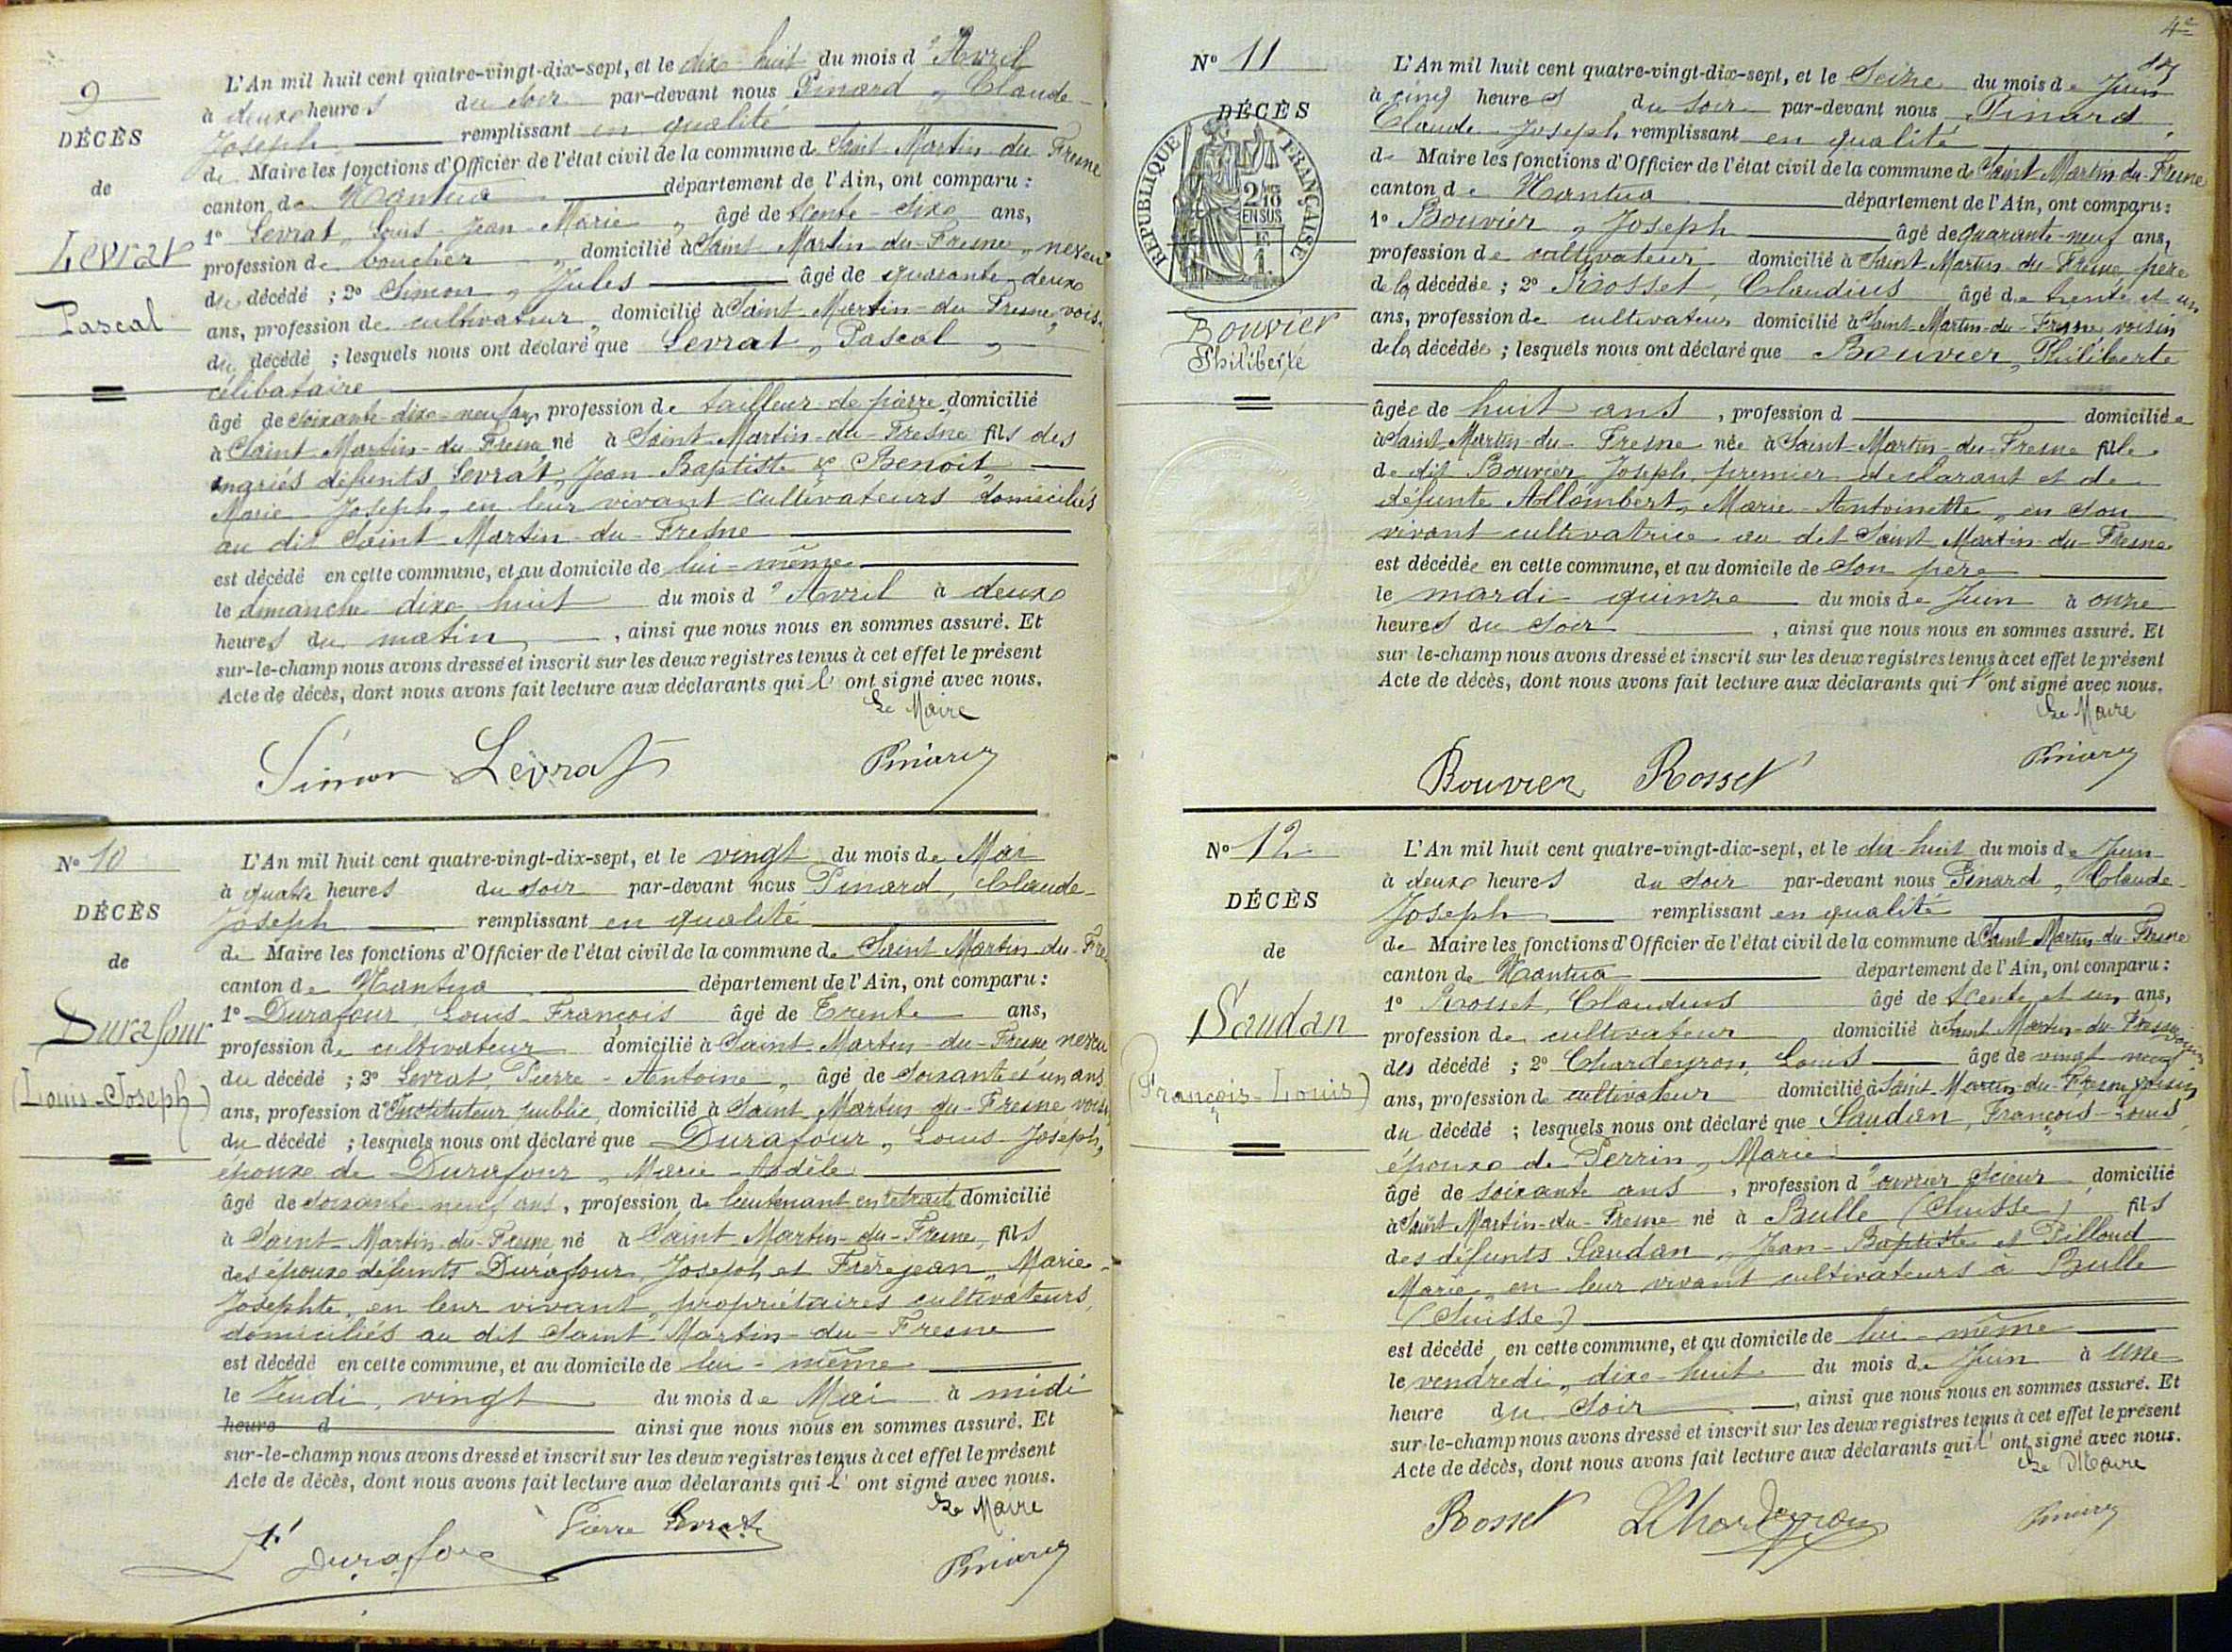 9
DÉCÈS
de
Levrat
Pascal
L'An mil huit cent quatre-vingt-dix-sept, et le dix-huit du mois d'Avril
à deux heures du soir par-devant nous Pinard, Claude-
Joseph remplissant en qualité
de Maire les fonctions d'Officier de l'état civil de la commune de Saint Martin du Fresne
canton de Nantua département de l'Ain, ont comparu :
1° Levrat, Louis-Jean-Marie, âgé de trente-six ans,
profession de boucher, domicilié à Saint Martin-du-Fresne, neveu
du décédé ; 2° Simon, Jules âgé de quarante-deux
ans, profession de cultivateur, domicilié à Saint-Martin-du-Fresne, vois.
du décédé ; lesquels nous ont déclaré que Levrat, Pascal,
célibataire
âgé de soixante-dix-neuf ans, profession de tailleur de pierre, domicilié
à Saint Martin-du-Fresne né à Saint-Martin-du-Fresne fils des
mariés défunts Levrat, Jean-Baptiste & Benoit,
Marie-Joseph, en leur vivant cultivateurs domiciliés
au dit Saint Martin-du-Fresne
est décédé en cette commune, et au domicile de lui-même
le dimanche dix-huit du mois d'Avril à deux
heures du matin, ainsi que nous nous en sommes assuré. Et
sur-le-champ nous avons dressé et inscrit sur les deux registres tenus à cet effet le présent
Acte de décès, dont nous avons fait lecture aux déclarants qui l'ont signé avec nous.
Le Maire
Simon Levrat Pinard
N° 10
DÉCÈS
de
Durafour
(Louis-Joseph)
L'An mil huit cent quatre-vingt-dix-sept, et le vingt du mois de Mai
à quatre heures du soir par-devant nous Pinard, Claude-
Joseph remplissant en qualité
de Maire les fonctions d'Officier de l'état civil de la commune de Saint Martin-du-Fre
canton de Nantua département de l'Ain, ont comparu :
1° Durafour, Louis-François âgé de Trente ans,
profession de cultivateur domicilié à Saint-Martin-du-Fresne neveu
du décédé ; 2° Levrat, Pierre-Antoine, âgé de soixante et un ans
ans, profession d'Instituteur public, domicilié à Saint Martin du-Fresne vois.
du décédé ; lesquels nous ont déclaré que Durafour, Louis Joseph,
époux de Durafour, Marie-Adèle
âgé de soixante-neuf ans, profession de lieutenant en retraite domicilié
à Saint-Martin-du-Fresne né à Saint-Martin-du-Fresne, fils
des époux défunts Durafour, Joseph et Frèrejean, Marie-
Josephte, en leur vivant propriétaires cultivateurs,
domiciliés au dit Saint-Martin-du-Fresne
est décédé en cette commune, et au domicile de lui-même
le Jeudi, vingt du mois de Mai à midi
heure d ainsi que nous nous en sommes assuré. Et
sur-le-champ nous avons dressé et inscrit sur les deux registres tenus à cet effet le présent
Acte de décès, dont nous avons fait lecture aux déclarants qui l'ont signé avec nous.
Le Maire
Durafour Pierre Levrat Pinard
4e
N° 11
DÉCÈS
RÉPUBLIQUE FRANÇAISE
2/10
EN SUS
Bouvier
Philiberte
L'An mil huit cent quatre-vingt-dix-sept, et le Seize du mois de Juin
à cinq heures du soir par-devant nous Pinard,
Claude-Joseph remplissant en qualité
de Maire les fonctions d'Officier de l'état civil de la commune de Saint Martin-du-Fresne
canton de Nantua département de l'Ain, ont comparu :
1° Bouvier, Joseph âgé de quarante-neuf ans,
profession de cultivateur domicilié à Saint Martin-du-Fresne, père
de la décédée ; 2° Rosset, Claudius âgé de trente et un
ans, profession de cultivateur domicilié à Saint-Martin-du-Fresne voisin
de la décédée ; lesquels nous ont déclaré que Bouvier, Philiberte
âgée de huit ans, profession d domiciliée
à Saint Martin-du-Fresne née à Saint-Martin-du-Fresne fille
de dit Bouvier, Joseph, premier déclarant et de
défunte Allombert, Marie-Antoinette, en son
vivant cultivatrice au dit Saint Martin-du-Fresne
est décédée en cette commune, et au domicile de son père
le mardi quinze du mois de Juin à onze
heures du soir, ainsi que nous nous en sommes assuré. Et
sur-le-champ nous avons dressé et inscrit sur les deux registres tenus à cet effet le présent
Acte de décès, dont nous avons fait lecture aux déclarants qui l'ont signé avec nous.
Le Maire
Bouvier Rosset Pinard
N° 12
DÉCÈS
de
Saudan
(François-Louis)
L'An mil huit cent quatre-vingt-dix-sept, et le dix-huit du mois de Juin
à deux heures du soir par-devant nous Pinard, Claude-
Joseph remplissant en qualité
de Maire les fonctions d'Officier de l'état civil de la commune de Saint Martin-du-Fresne
canton de Nantua département de l'Ain, ont comparu :
1° Rosset, Claudius âgé de trente et un ans,
profession de cultivateur domicilié à Saint Martin-du-Fresne voisin
du décédé ; 2° Chardeyron, Louis âgé de vingt-neuf
ans, profession de cultivateur domicilié à Saint-Martin-du-Fresne voisin
du décédé ; lesquels nous ont déclaré que Saudan, François-Louis,
époux de Perrin, Marie
âgé de soixante ans, profession d'ouvrier scieur, domicilié
à Saint Martin-du-Fresne né à Bulle (Suisse) fils
des défunts Saudan, Jean-Baptiste et Pilloud
Marie, en leur vivant cultivateurs à Bulle
(Suisse)
est décédé en cette commune, et au domicile de lui-même
le vendredi, dix-huit du mois de Juin à une
heure du soir, ainsi que nous nous en sommes assuré. Et
sur-le-champ nous avons dressé et inscrit sur les deux registres tenus à cet effet le présent
Acte de décès, dont nous avons fait lecture aux déclarants qui l'ont signé avec nous.
Le Maire
Rosset LChardeyron Pinard